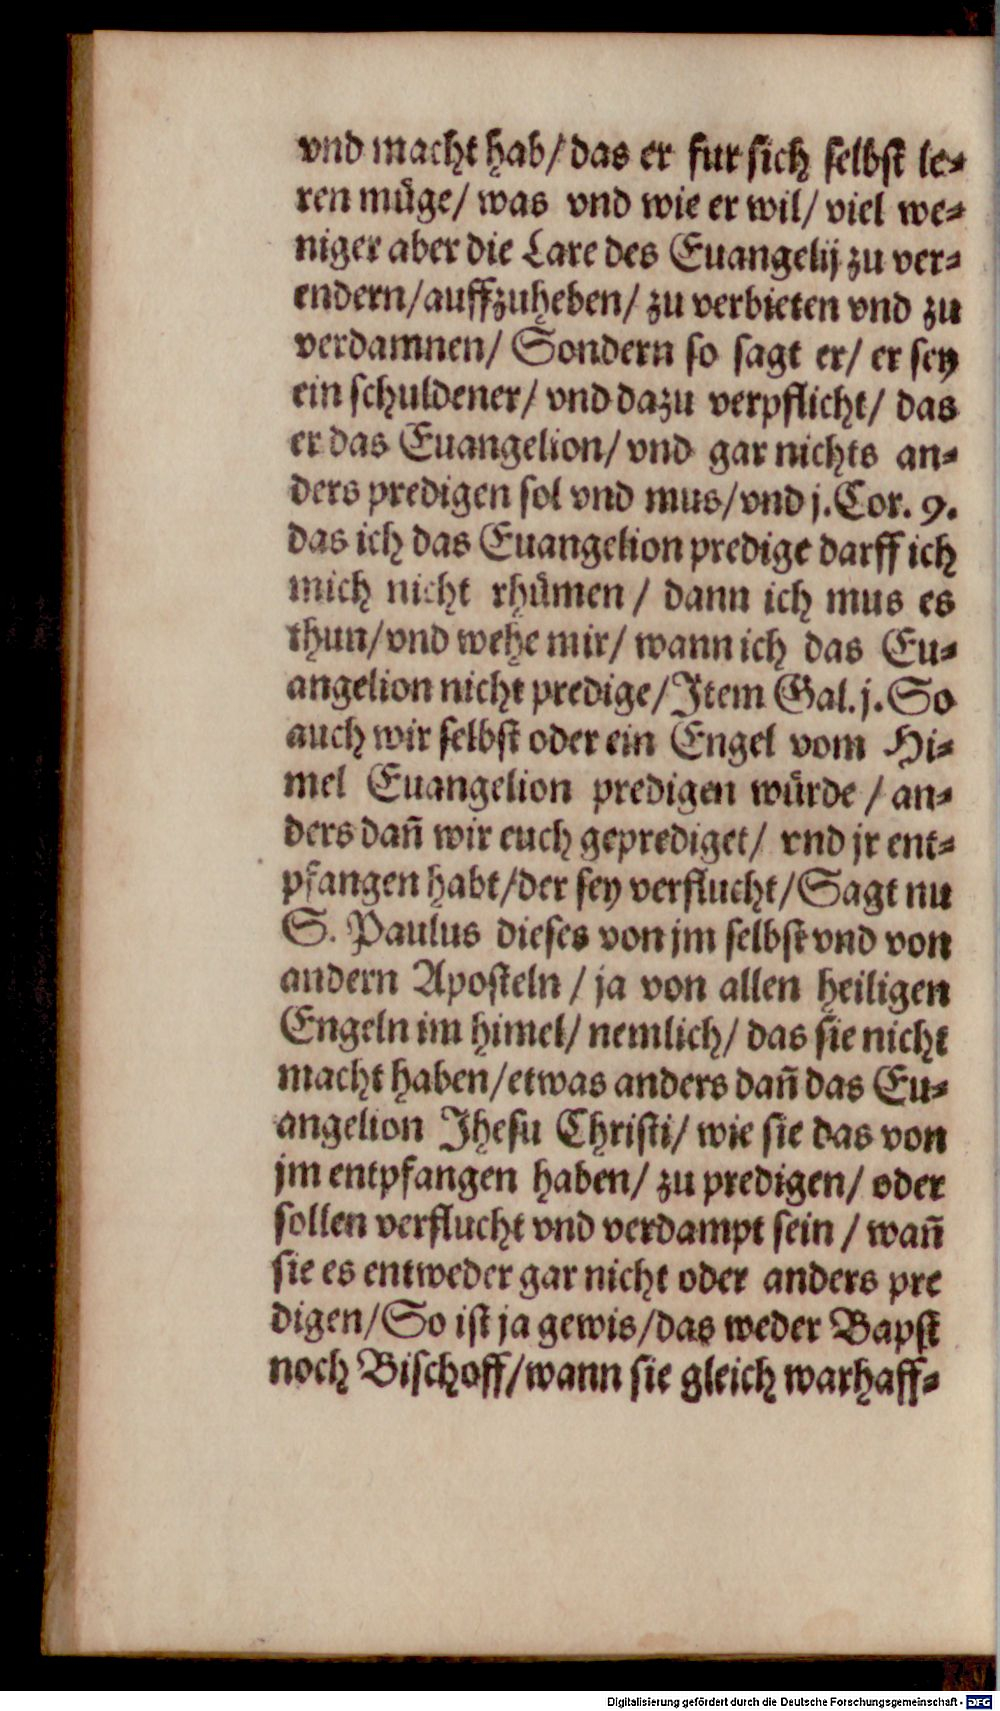 vnd macht hab/ das er fur sich selbst le⸗
ren můge/ was vnd wie er wil/ viel we⸗
niger aber die Lare des Euangelij zu ver⸗
endern/ auffzuheben/ zu verbieten vnd zu
verdamnen/ Sondern so sagt er/ er sey
ein schuldener/ vnd dazu verpflicht/ das
er das Euangelion/ vnd gar nichts an⸗
ders predigen sol vnd mus/ vnd j. Cor. 9.
das ich das Euangelion predige darff ich
mich nicht rhůmen / dann ich mus es
thun/ vnd wehe mir/ wann ich das Eu⸗
angelion nicht predige/ Item Gal. j. So
auch wir selbst oder ein Engel vom Hi⸗
mel Euangelion predigen würde / an⸗
ders dañ wir euch geprediget/ vnd jr ent⸗
pfangen habt/ der sey verflucht/ Sagt nu
S. Paulus dieses von jm selbst vnd von
andern Aposteln / ja von allen heiligen
Engeln im himel/ nemlich/ das sie nicht
macht haben/ etwas anders dañ das Eu⸗
angelion Jhesu Christi/ wie sie das von
jm entpfangen haben/ zu predigen/ oder
sollen verflucht vnd verdampt sein / wañ
sie es entweder gar nicht oder anders pre
digen/ So ist ja gewis/ das weder Bapst
noch Bischoff/ wann sie gleich warhaff⸗
Digitalisierung gefördert durch die Deutsche Forschungsgemeinschaft - DFG